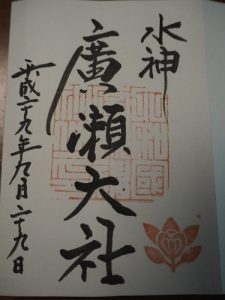 水神
廣瀬大社
平成二十九年九月二十九日